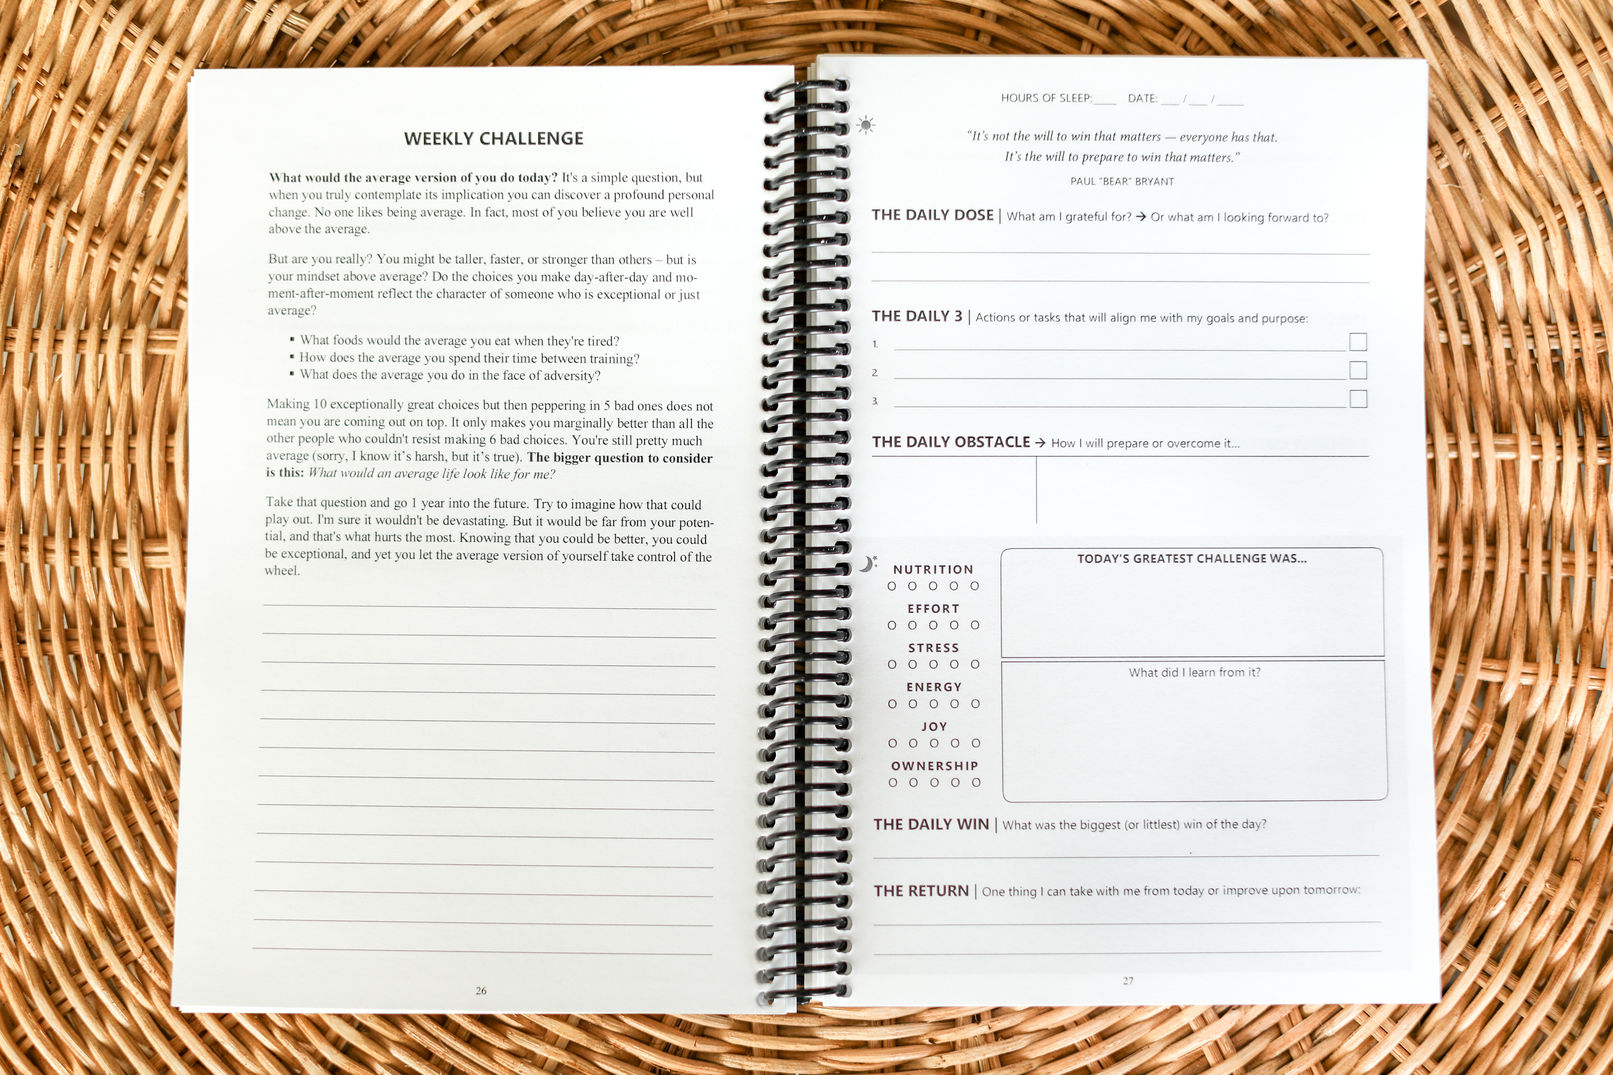 WEEKLY CHALLENGE
What would the average version of you do today? It's a simple question, but
when you truly contemplate its implication you can discover a profound personal
change. No one likes being average. In fact, most of you believe you are well
above the average.
But are you really? You might be taller, faster, or stronger than others – but is
your mindset above average? Do the choices you make day-after-day and mo-
ment-after-moment reflect the character of someone who is exceptional or just
average?
▪ What foods would the average you eat when they're tired?
▪ How does the average you spend their time between training?
▪ What does the average you do in the face of adversity?
Making 10 exceptionally great choices but then peppering in 5 bad ones does not
mean you are coming out on top. It only makes you marginally better than all the
other people who couldn't resist making 6 bad choices. You're still pretty much
average (sorry, I know it's harsh, but it's true). The bigger question to consider
is this: What would an average life look like for me?
Take that question and go 1 year into the future. Try to imagine how that could
play out. I'm sure it wouldn't be devastating. But it would be far from your poten-
tial, and that's what hurts the most. Knowing that you could be better, you could
be exceptional, and yet you let the average version of yourself take control of the
wheel.
26
HOURS OF SLEEP:____ DATE: ___ / ___ / ____
"It's not the will to win that matters — everyone has that.
It's the will to prepare to win that matters."
PAUL "BEAR" BRYANT
THE DAILY DOSE | What am I grateful for? → Or what am I looking forward to?
THE DAILY 3 | Actions or tasks that will align me with my goals and purpose:
1.
2.
3.
THE DAILY OBSTACLE → How I will prepare or overcome it...
NUTRITION
EFFORT
STRESS
ENERGY
JOY
OWNERSHIP
TODAY'S GREATEST CHALLENGE WAS...
What did I learn from it?
THE DAILY WIN | What was the biggest (or littlest) win of the day?
THE RETURN | One thing I can take with me from today or improve upon tomorrow:
27